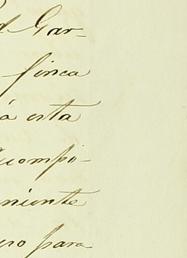 d Gar-
finca
á esta
compi-
niente
ero para